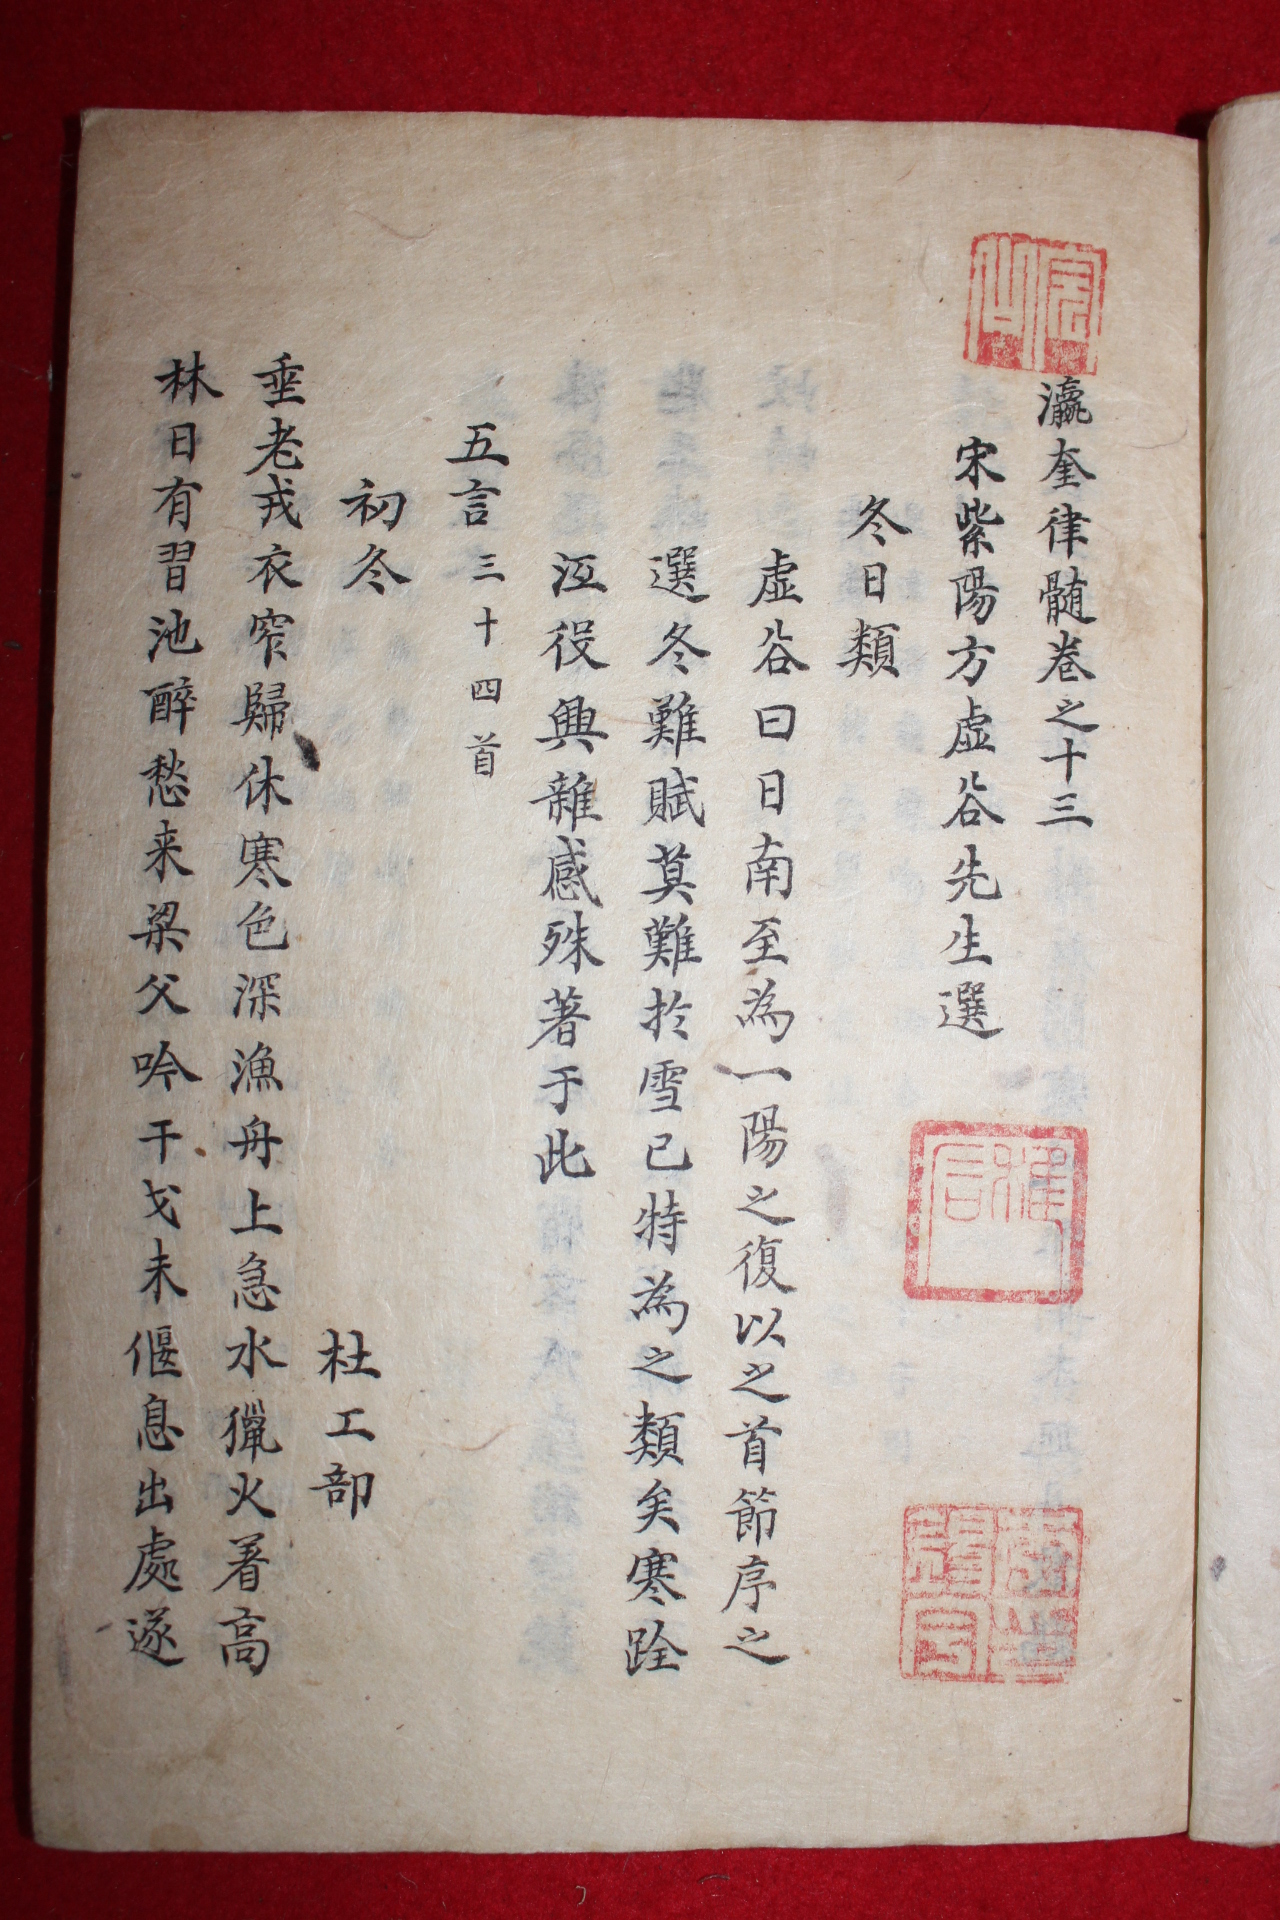 瀛奎律髓卷之十三
宋紫陽方虛谷先生選
冬日類
虛谷曰日南至為一陽之復以之首節序之
選冬難賦莫難於雪已特為之類矣寒跧
沍役興雜感殊著于此
五言三十四首
初冬 杜工部
垂老戎衣窄歸休寒色深漁舟上急水獵火著高
林日有習池醉愁来梁父吟干戈未偃息出處遂